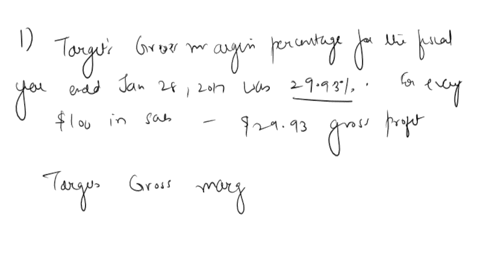 1) Target's Gross margin percentage for the fiscal
year ended Jan 28, 2017 was 29.93%. For every
$100 in sales - $29.93 gross profit
Targets Gross marg